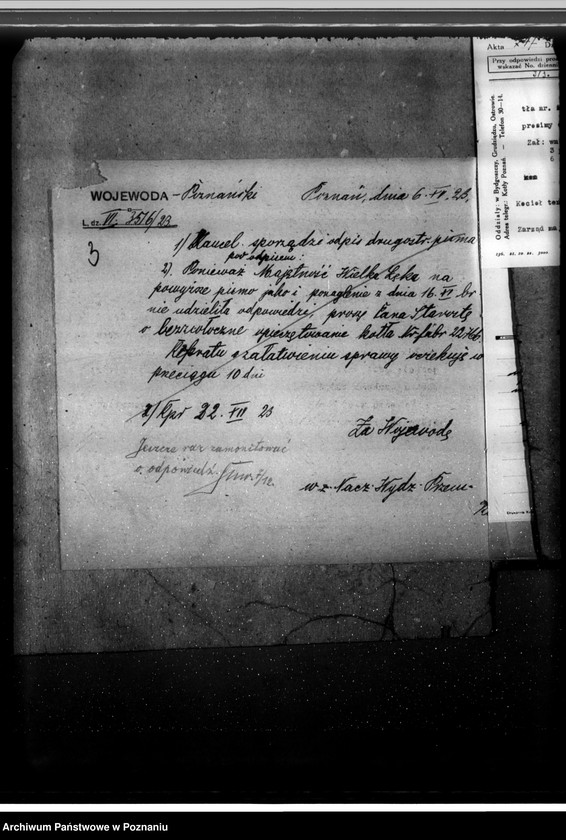 WOJEWODA - Poznański
Poznań, dnia 6. VII. 23.
L. dz. VI. 3516/23
3
1) Kancel. sporządzi odpis drugostr. pisma
pod odpisem:
2). Ponieważ Majętność Wielka Łęka na
powyższe pismo jako i ponaglenie z dnia 16. VI br
nie udzieliła odpowiedzi, proszę Pana Starostę
o bezzwłoczne opieczętowanie kotła Nr. fabr 22766.
załatwieniu sprawy oczekuję w
przeciągu 10 dni
22. VII 23
Za Wojewodę
Jeszcze raz zamonitować
o odpowiedź.
w z Nacz Wydz. Przem.
Akta
Przy odpowiedzi
wskazać No.
Oddziały: w Bydgoszczy, Grudziądzu, Ostrowie.
Telefon 30-14.
tła nr.
prosimy
Zał:
3
6
Kocioł
Zarząd
Archiwum Państwowe w Poznaniu